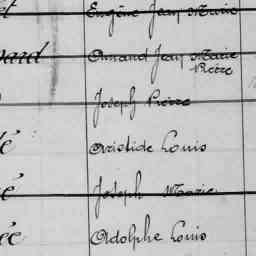 Eugène Jean Marie
Armand Jean Marie
Pierre
Joseph Pierre
Aristide Louis
Joseph Marie
Adolphe Louis